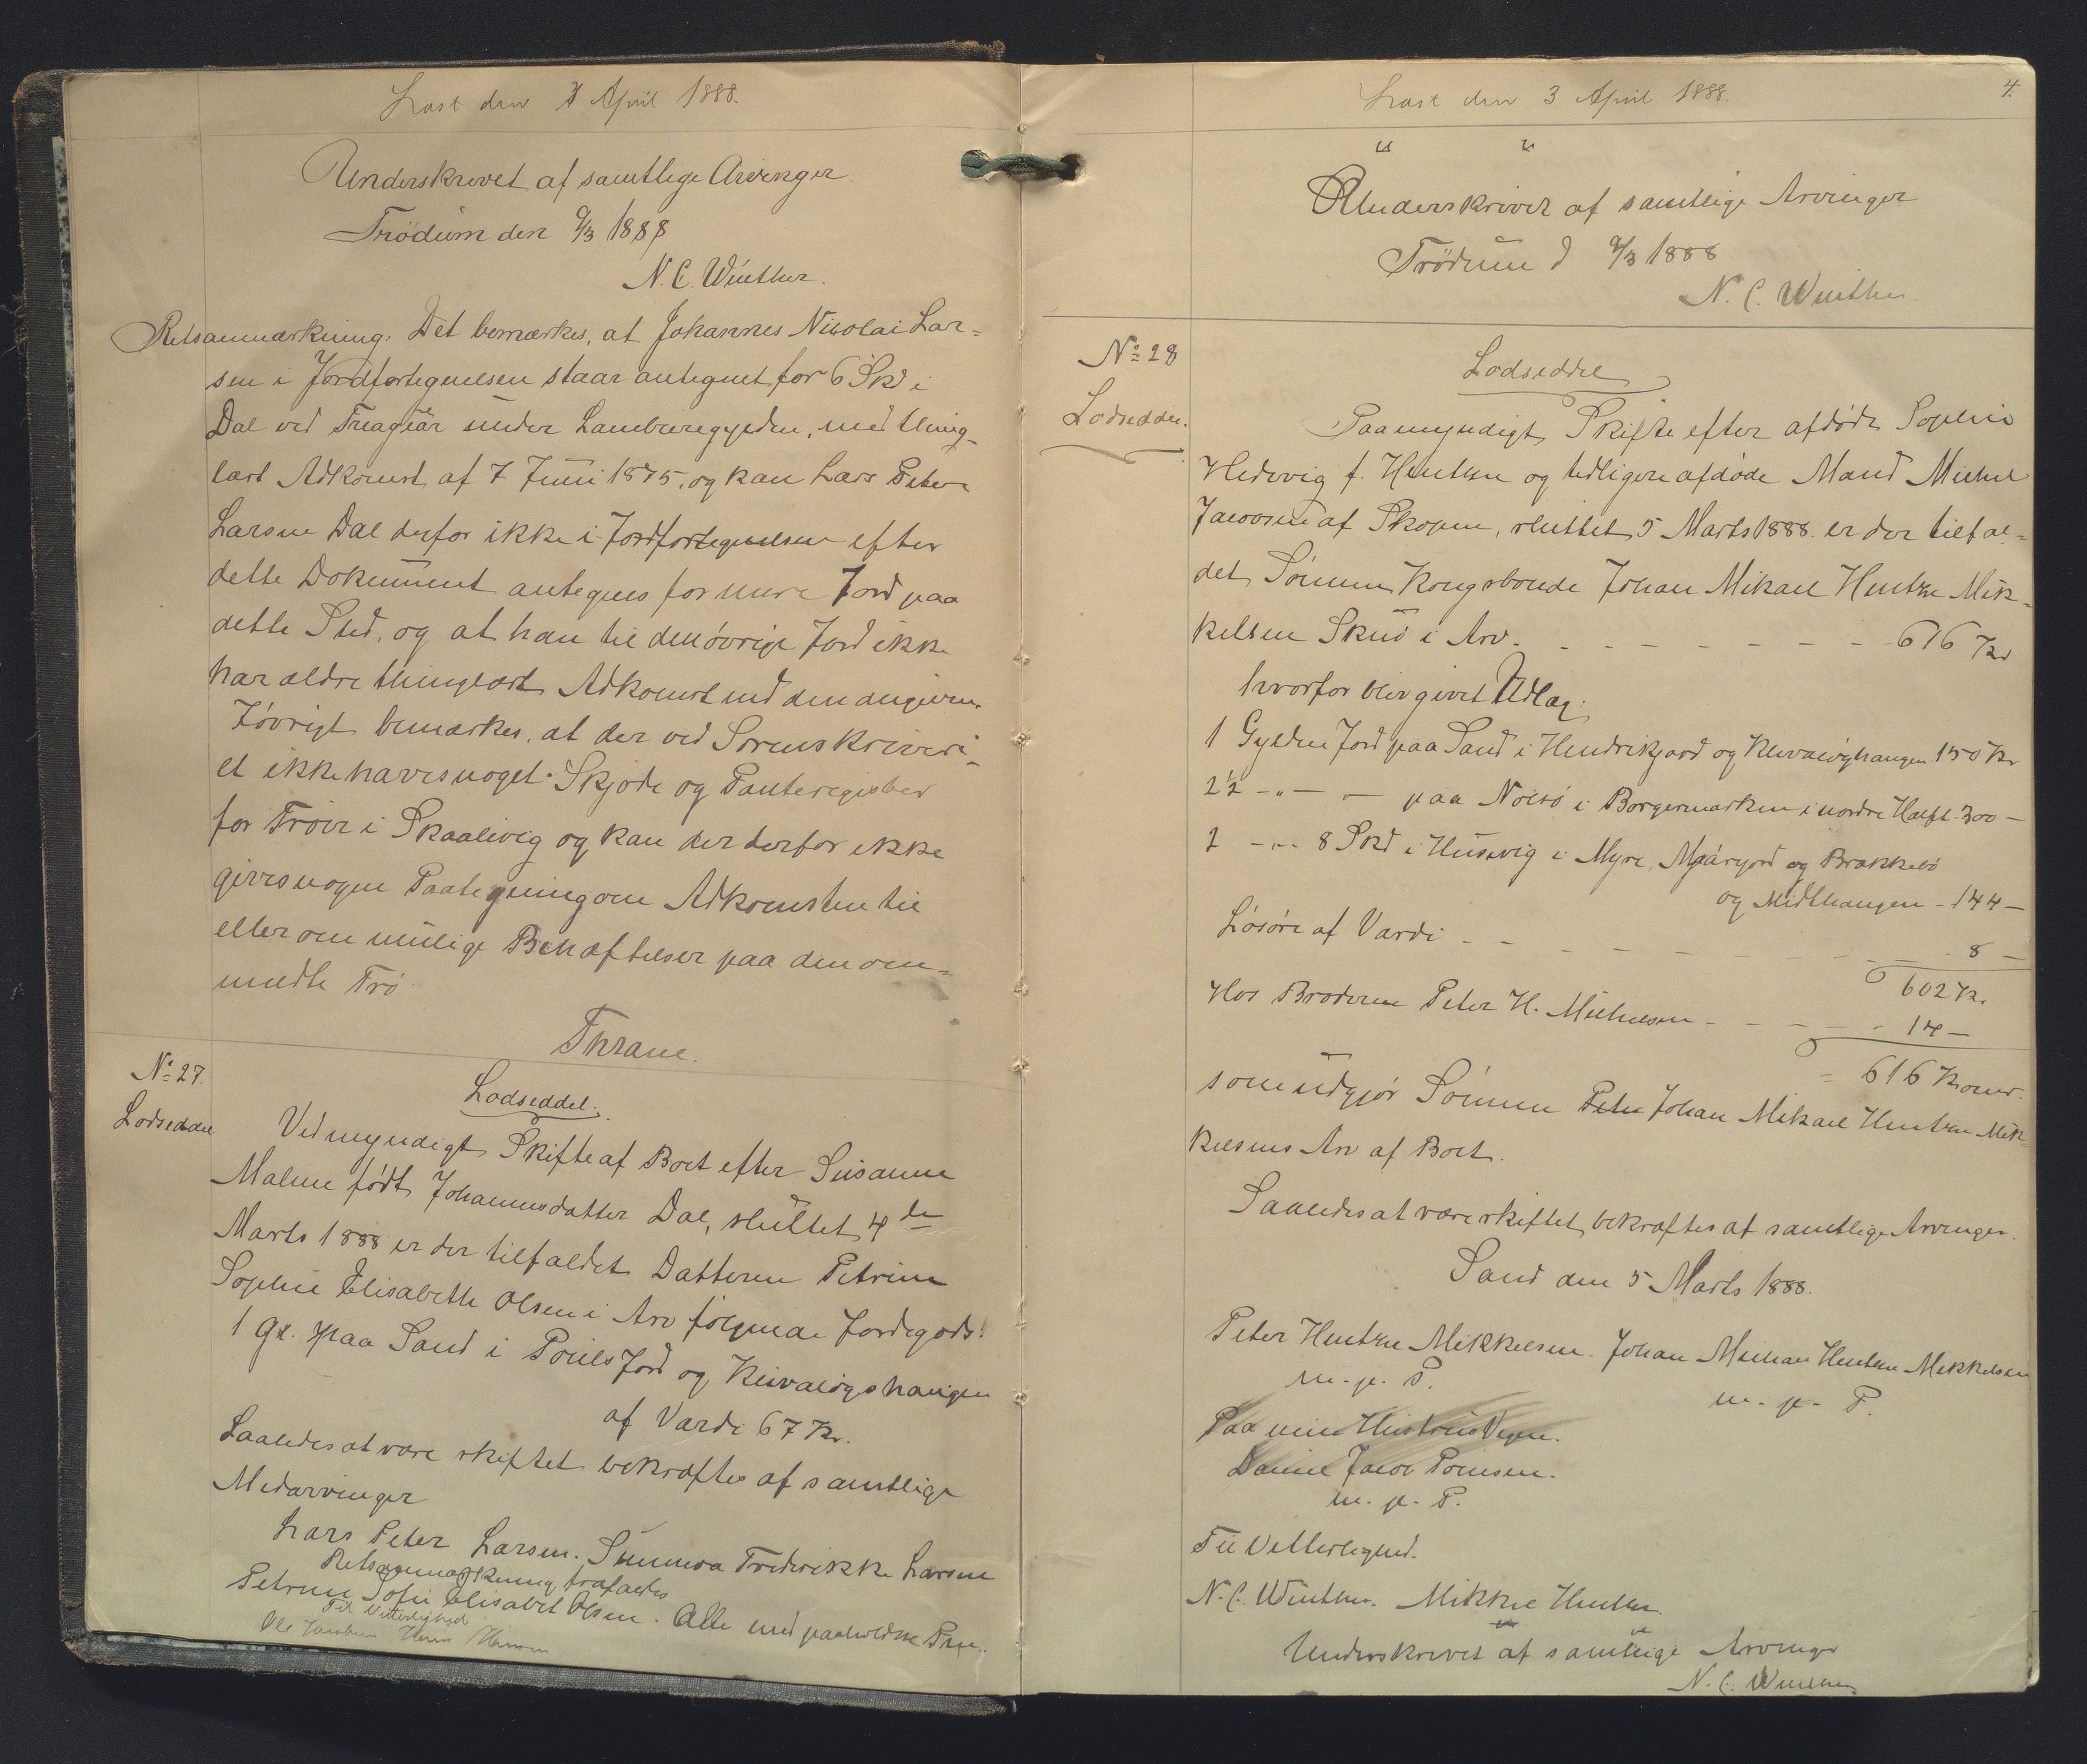 Læst den 3 April 1888.
Underskrevet af samtlige Arvinger
Trödum den 9/3 1888
N. C. Winther.
Retsanmærkning: Det bemærkes, at Johannes Nicolai Lar=
sen i Jordfortegnelsen staar antegnet for 6 Skd i
Dal ved Treagiar under Lambaregyeden, med thing-
læst Adkomst af 7 Juni 1875, og kan Lars Peter
Larsen Dal derfor ikke i Jordfortegnelsen efter
dette Dokument antegnes for mere Jord paa
dette Sted, og at han til den øvrige Jord ikke
har ældre thinglæst Adkomst end den angivne.
Iøvrigt bemærkes, at der ved Sorenskriveri-
et ikke haves noget Skjøde og Panteregister
for Trøer i Skaalevig og kan der derfor ikke
gives nogen Paategning om Adkomsten til
eller om mulige Behæftelser paa den om=
meldte Trö
Thrane.
No 27.
Lodseddel
Lodseddel.
Ved myndigt Skifte af Boet efter Susanne
Malene født Johannesdatter Dal, sluttet 4de
Marts 1888 er der tilfaldet Datteren Petrine
Sophie Elisabeth Olsen i Arv følgende Jordegods:
1 Gl. paa Sand i Pouls Jord og Kleivaløgshaugen
af Værdi 67 Kr.
Saaledes at være skiftet bekræftes af samtlige
Medarvinger
Lars Peter Larsen. Sunneva Frederikke Larsen
Retsanmærkning frafaldes
Petrine Sofie Elisabet Olsen. Alle med paaholden Pen.
Til Vitterlighed
Ole Jacobsen Hans Hansen
Læst den 3 April 1888.
4.
" "
Underskrevet af samtlige Arvinger
Trödum d 9/3 1888
N. C. Winther.
No 28
Lodseddel.
Lodseddel
Paa myndigt Skifte efter afdøde Sophie
Hedevig f. Hentzen og tidligere afdøde Mand Michel
Jacobsen af Skopen, sluttet 5 Marts 1888 er der tilfal=
det Sönnen Kongsbonde Johan Mikael Hentze Mik=
kelsen Skuö i Arv - - - 616 Kr
hvorfor blev givet Udlæg:
1 Gylden Jord paa Sand i Hendrikjord og Kleivaløghaugen 150 Kr
2½ -"- " paa Nolsö i Borgermarken i nordre Hæft 300 -
2 -"- 8 Skd i Húsevig i Myre, Mjáarjord og Brækkebö
og Midthaugen - 144 -
Lösöre af Værdi - - - 8 -
602 Kr.
Hos Broderen Peter H. Michelsen - - - 14 -
= 616 Kroner.
som udgjør Sönnen Peter Johan Mikael Hentze Mik=
kelsens Arv af Boet.
Saaledes at være skiftet bekræftes af samtlige Arvinger.
Sand den 5 Marts 1888.
Peter Hentze Mikkelsen. Johan Michael Hentze Mikkelsen
m. p. P. m. p. P.
Paa min Hustrus Vegne.
Daniel Jacob Poulsen.
m. p. P.
Til Vitterlighed.
N. C. Winther. Mikkel Hentze.
Underskrevet af samtlige Arvinger
N. C. Winther